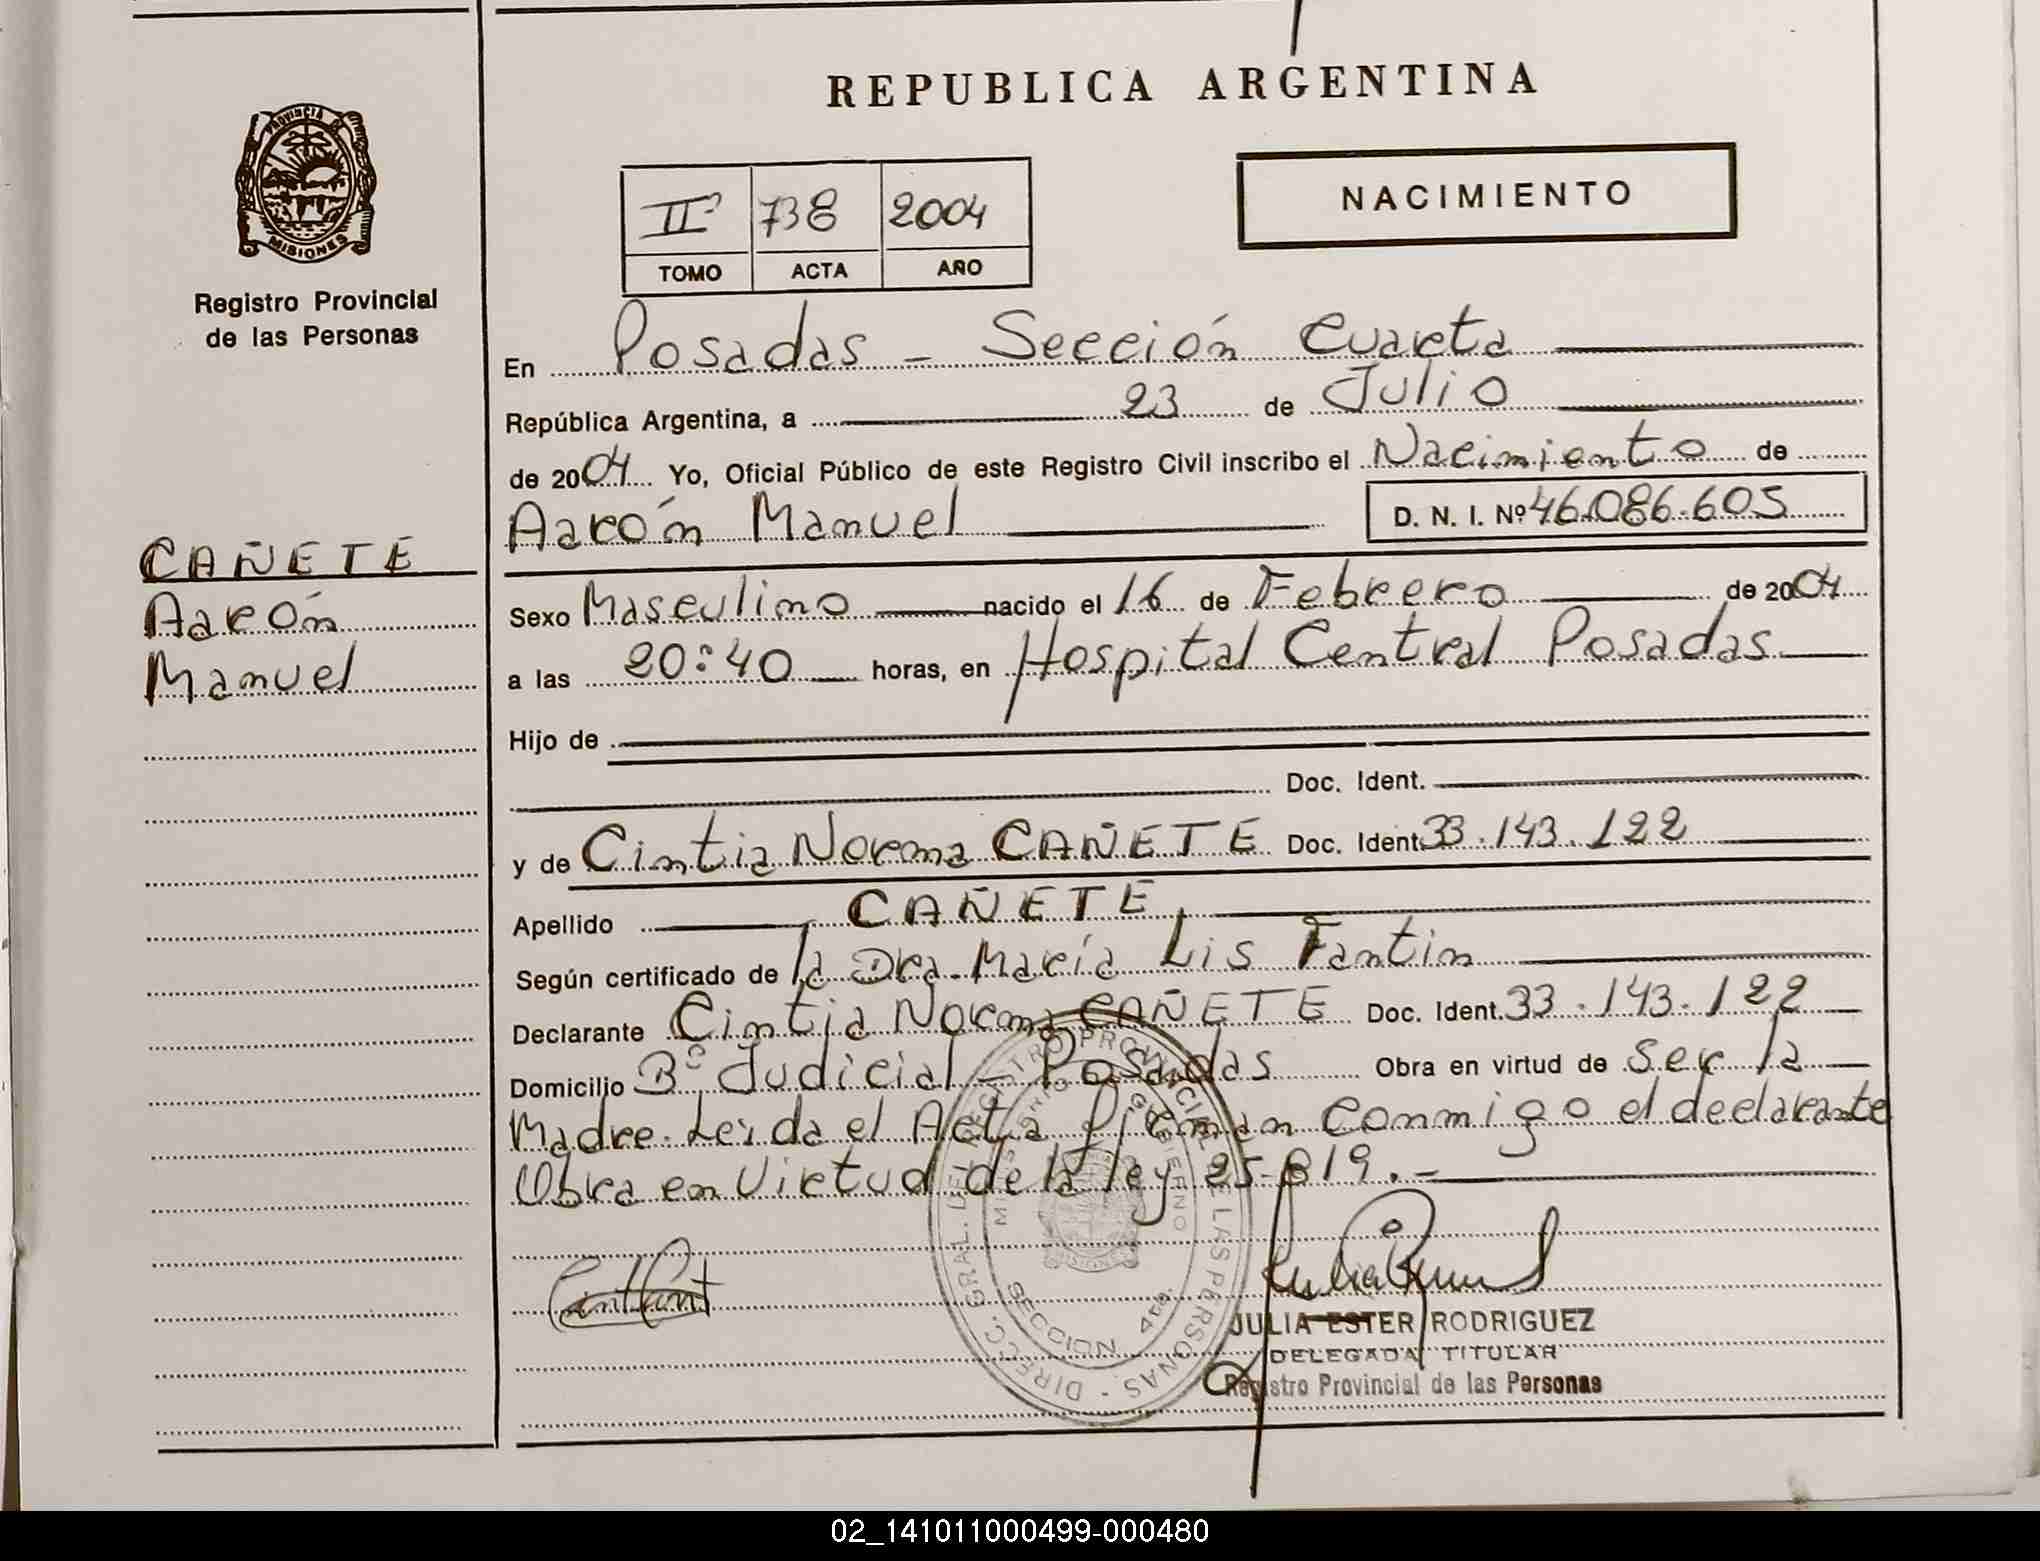 REPUBLICA ARGENTINA
PROVINCIA DE
MISIONES
Registro Provincial
de las Personas
IIº 738 2004
TOMO ACTA AÑO
NACIMIENTO
En Posadas - Sección Cuarta
República Argentina, a 23 de Julio
de 2004 Yo, Oficial Público de este Registro Civil inscribo el Nacimiento de
Aarón Manuel D. N. I. Nº 46.086.605
CAÑETE
Aarón
Manuel
Sexo Masculino nacido el 16 de Febrero de 2004
a las 20:40 horas, en Hospital Central Posadas
Hijo de
Doc. Ident.
y de Cintia Norma CAÑETE Doc. Ident. 33.143.122
Apellido CAÑETE
Según certificado de la Dra. María Lis Fantin
Declarante Cintia Norma CAÑETE Doc. Ident. 33.143.122
Domicilio Bº Judicial - Posadas Obra en virtud de Ser la
Madre. Leída el Acta Firman Conmigo el declarante
Obra en Virtud de la ley 25.819.-
DIRECC. GRAL. DEL REGISTRO PROVINCIAL DE LAS PERSONAS
MINISTERIO GOBIERNO
MISIONES
SECCION 4ta.
JULIA ESTER RODRIGUEZ
DELEGADA TITULAR
Registro Provincial de las Personas
02_141011000499-000480